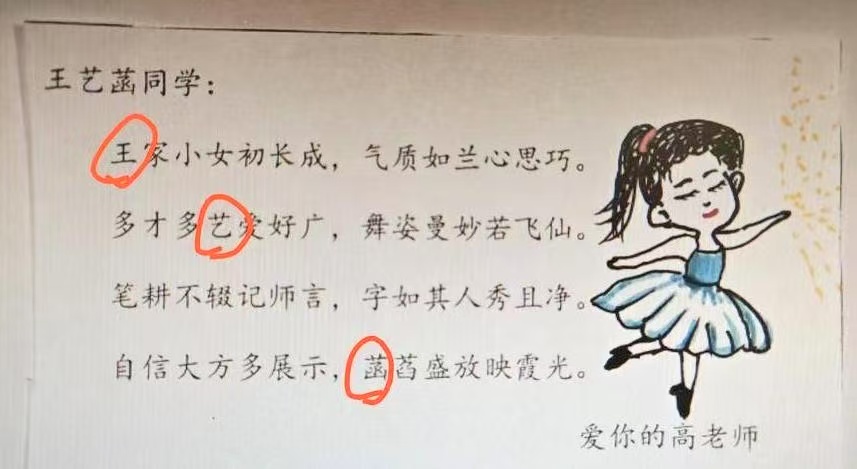 王艺菡同学：
王家小女初长成，气质如兰心思巧。
多才多艺爱好广，舞姿曼妙若飞仙。
笔耕不辍记师言，字如其人秀且净。
自信大方多展示，菡萏盛放映霞光。
爱你的高老师